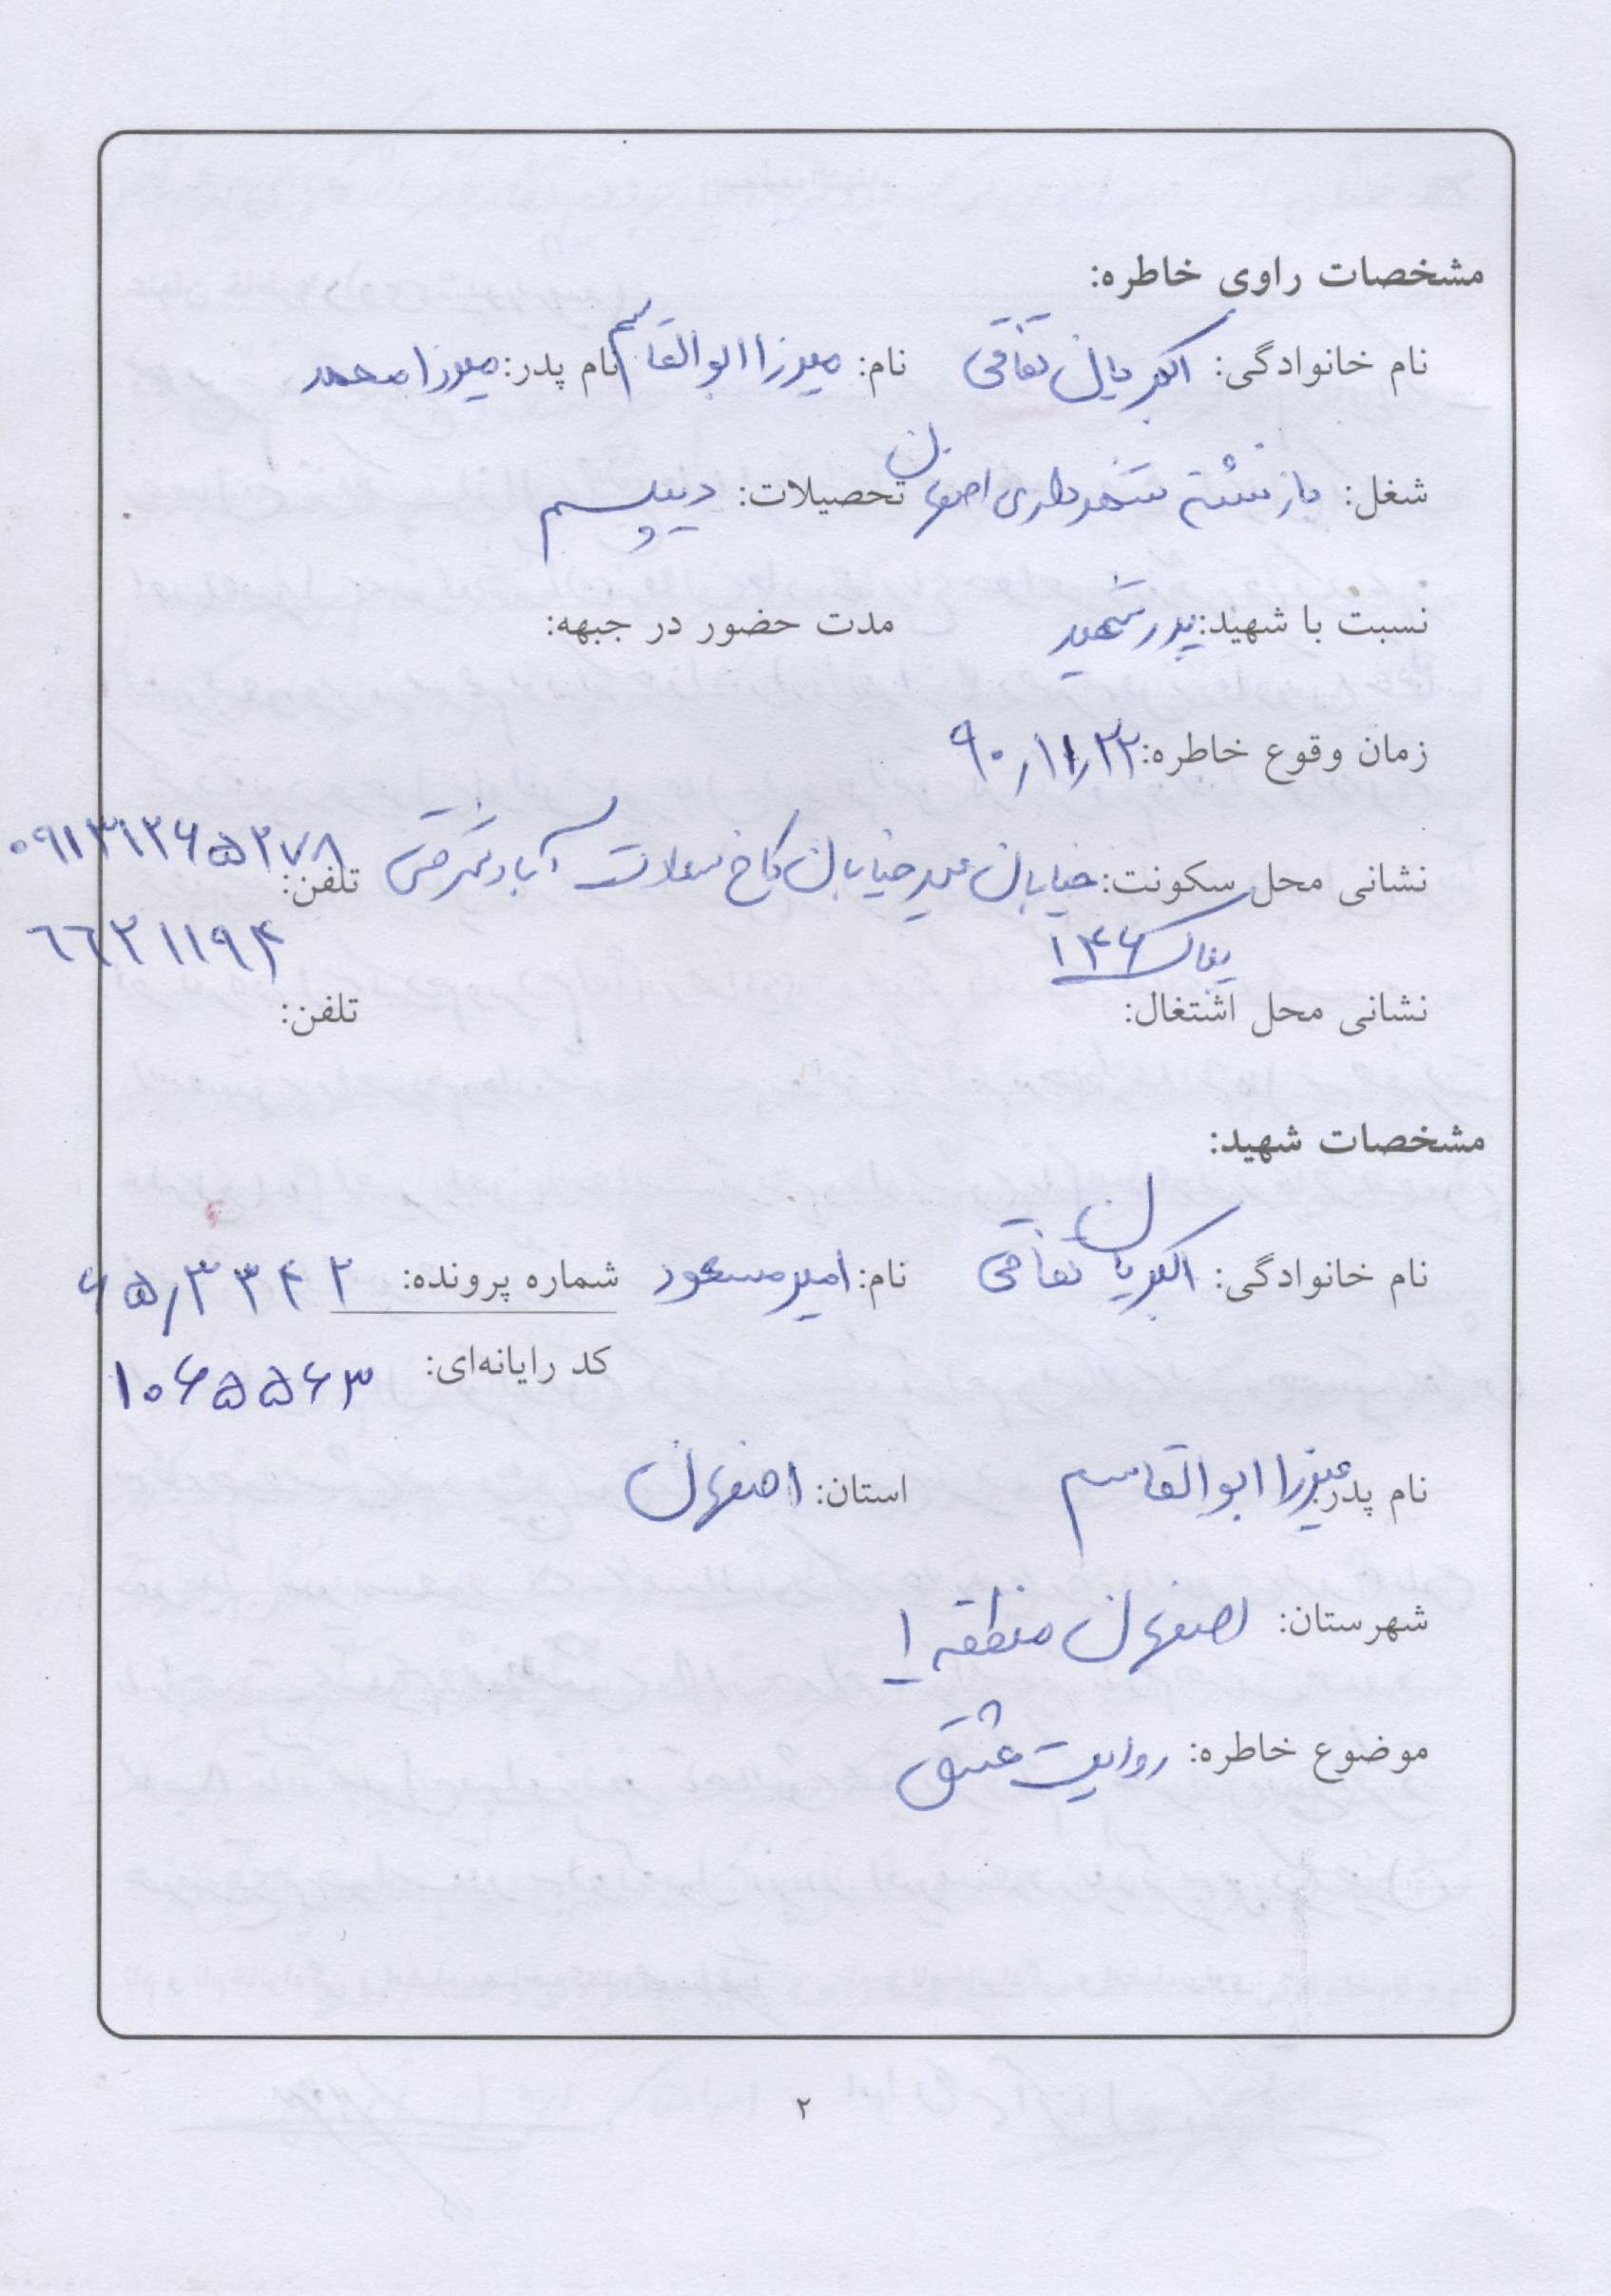 مشخصات راوی خاطره:
نام خانوادگی: اکبریان نقاقی نام: میرزا ابوالقاسم نام پدر: میرزا محمد
شغل: بازنشسته شهرداری اصفهان تحصیلات: دیپلم
نسبت با شهید: پدر شهید مدت حضور در جبهه:
زمان وقوع خاطره: ۹۰/۱۱/۲۲
نشانی محل سکونت: خیابان خیابان کاخ سعادت آباد شرقی تلفن: ۰۹۱۳۱۲۶۵۲۷۸
پلاک ۱۴۶ ۶۶۲۱۱۹۴
نشانی محل اشتغال: تلفن:
مشخصات شهید:
نام خانوادگی: اکبریان نقاقی نام: امیرمسعود شماره پرونده: ۶۵/۳۳۴۲
کد رایانه‌ای: ۱۰۶۵۵۶۳
نام پدر: میرزا ابوالقاسم استان: اصفهان
شهرستان: اصفهان منطقه ۱
موضوع خاطره: روایت عشق
۲